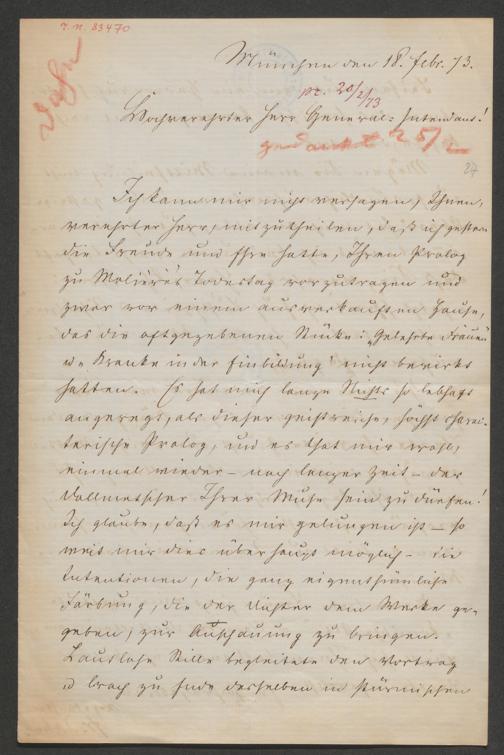 J. N. 83470
München den 18. Febr. 73.
pr. 20/2/73
Hochverehrter Herr General-Intendant!
gedankt 25/2
27
Ich kann mir nicht versagen, Ihnen,
verehrter Herr, mitzutheilen, daß ich gestern
die Freude und Ehre hatte, Ihren Prolog
zu Molière's Todestag vorzutragen und
zwar vor einem ausverkauften Hause,
das die oftgegebenen Stücke: „Gelehrte Frauen"
u „Kranke in der Einbildung" nicht bewirkt
hatten. Es hat mich lange Nichts so lebhaft
angeregt, als dieser geistreiche, höchst charak-
teristische Prolog, und es that mir wohl,
einmal wieder – nach langer Zeit – der
Dollmetscher Ihrer Muse sein zu dürfen!
Ich glaube, daß es mir gelungen ist – so
weit mir dies überhaupt möglich – die
Intentionen, die ganz eigenthümliche
Färbung, die der Dichter dem Werke ge-
geben, zur Anschauung zu bringen.
Lautlose Stille begleitete den Vortrag
u brach zu Ende desselben in stürmischen